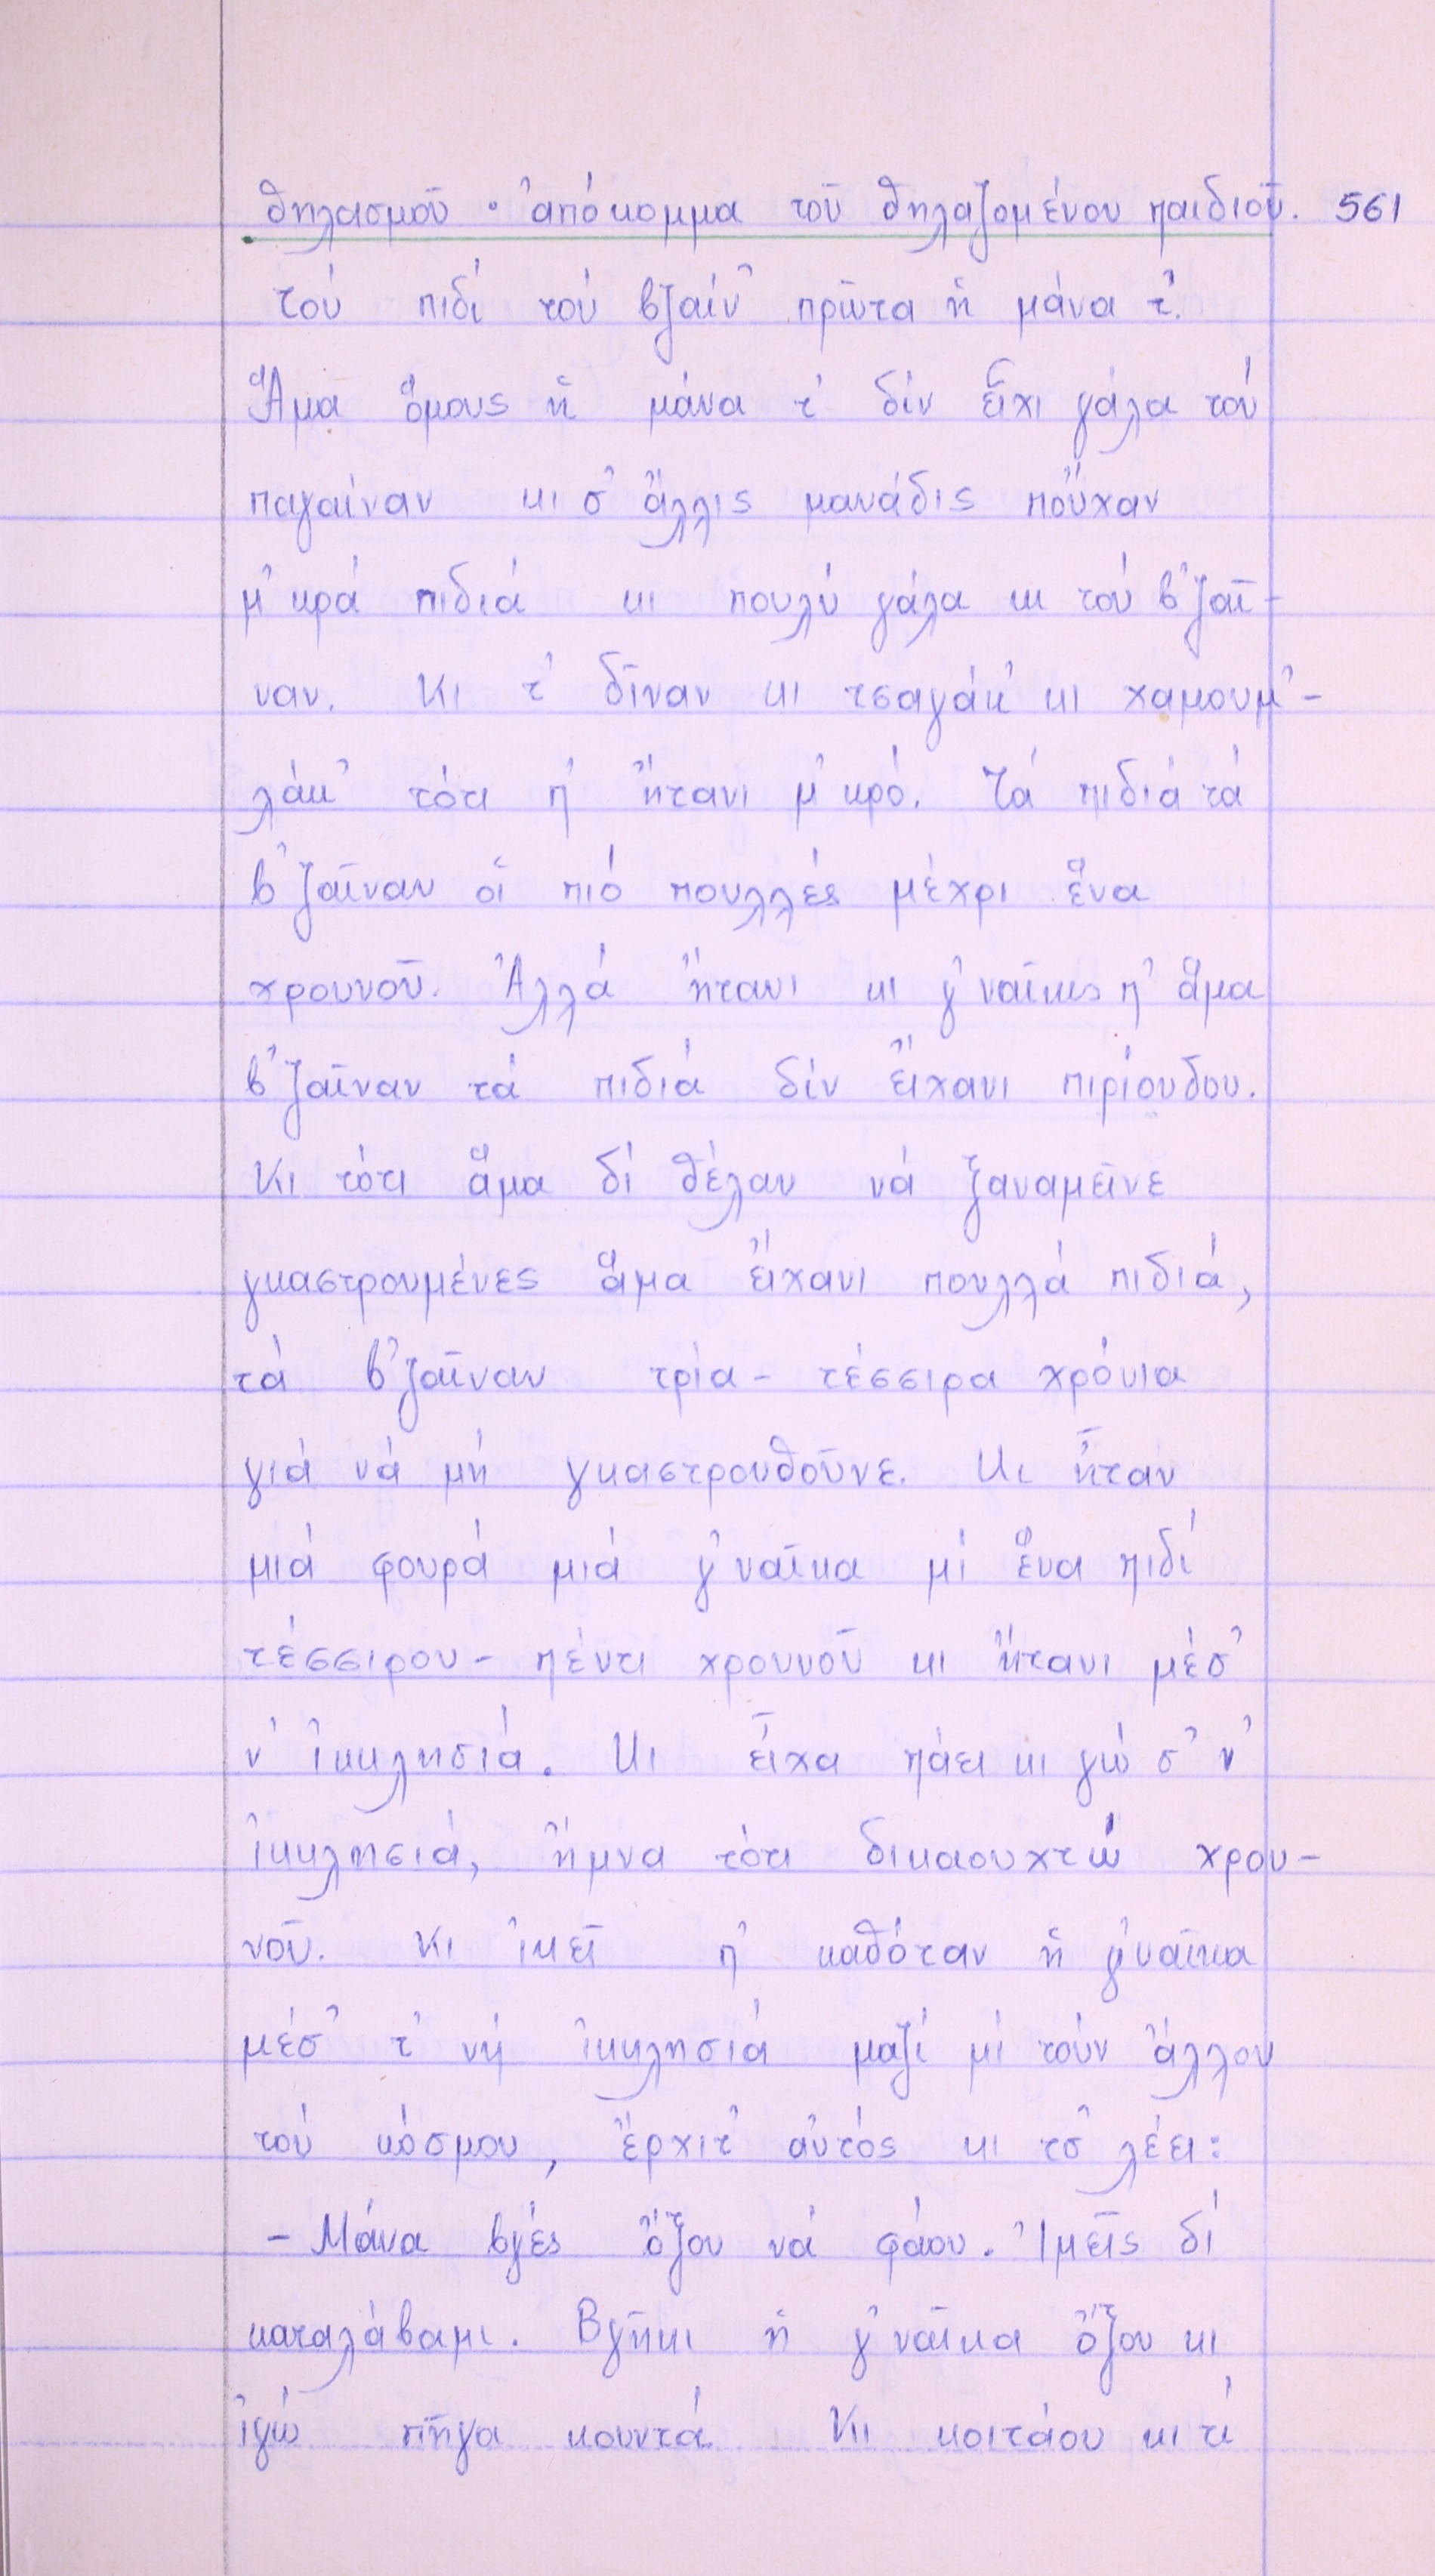 θηλασμοῦ · ἀπόκομμα τοῦ θηλαζομένου παιδιοῦ. 561
Τού πιδί τού βζαίν᾿ πρῶτα ἡ μάνα τ᾿.
Ἅμα ὅμους ἡ μάνα τ᾿ δίν εἶχι γάλα τού
παγαίναν κι σ᾿ ἄλλις μανάδις ποὔχαν
μ᾿κρά πιδιά κι πουλύ γάλα κι τού β᾿ζαῖ-
ναν. Κι τ᾿ δῖναν κι τσαγάκ᾿ κι χαμουμ᾿-
λάκ᾿ τότι π᾿ ἤτανι μ᾿κρό. Τά πιδιά τά
β᾿ζαῖναν οἱ πιό πουλλές μέχρι ἕνα
χρουνοῦ. Ἀλλά ἤτανι κι γ᾿ναῖκις π᾿ ἅμα
β᾿ζαῖναν τά πιδιά δίν εἴχανι πιρίουδου.
Κι τότι ἅμα δί θέλαν νά ξαναμεῖνε
γκαστρουμένες ἅμα εἴχανι πουλλά πιδιά,
τά β᾿ζαῖναν τρία - τέσσιρα χρόνια
γιά νά μή γκαστρουθοῦνε. Κι ἦταν
μιά φουρά μιά γ᾿ναῖκα μί ἕνα πιδί
τέσσιρου - πέντι χρουνοῦ κι ἤτανι μέσ᾿
ν᾿ ἰκκλησιά. Κι εἶχα πάει κι γώ σ᾿ ν᾿
ἰκκλησιά, ἤμνα τότι δικαουχτώ χρου-
νοῦ. Κι ἰκεῖ π᾿ καθόταν ἡ γ᾿ναῖκα
μέσ᾿ τ᾿ νή ἰκκλησιά μαζί μί τούν ἄλλου
τού κόσμου, ἔρχιτ᾿ αὐτός κι τσ᾿ λέει:
- Μάνα βγές ὄξου νά φάου. Ἰμεῖς δί
καταλάβαμι. Βγῆκι ἡ γ᾿ναῖκα ὄξου κι
ἰγώ πῆγα κουντά. Κι κοιτάου κι τί